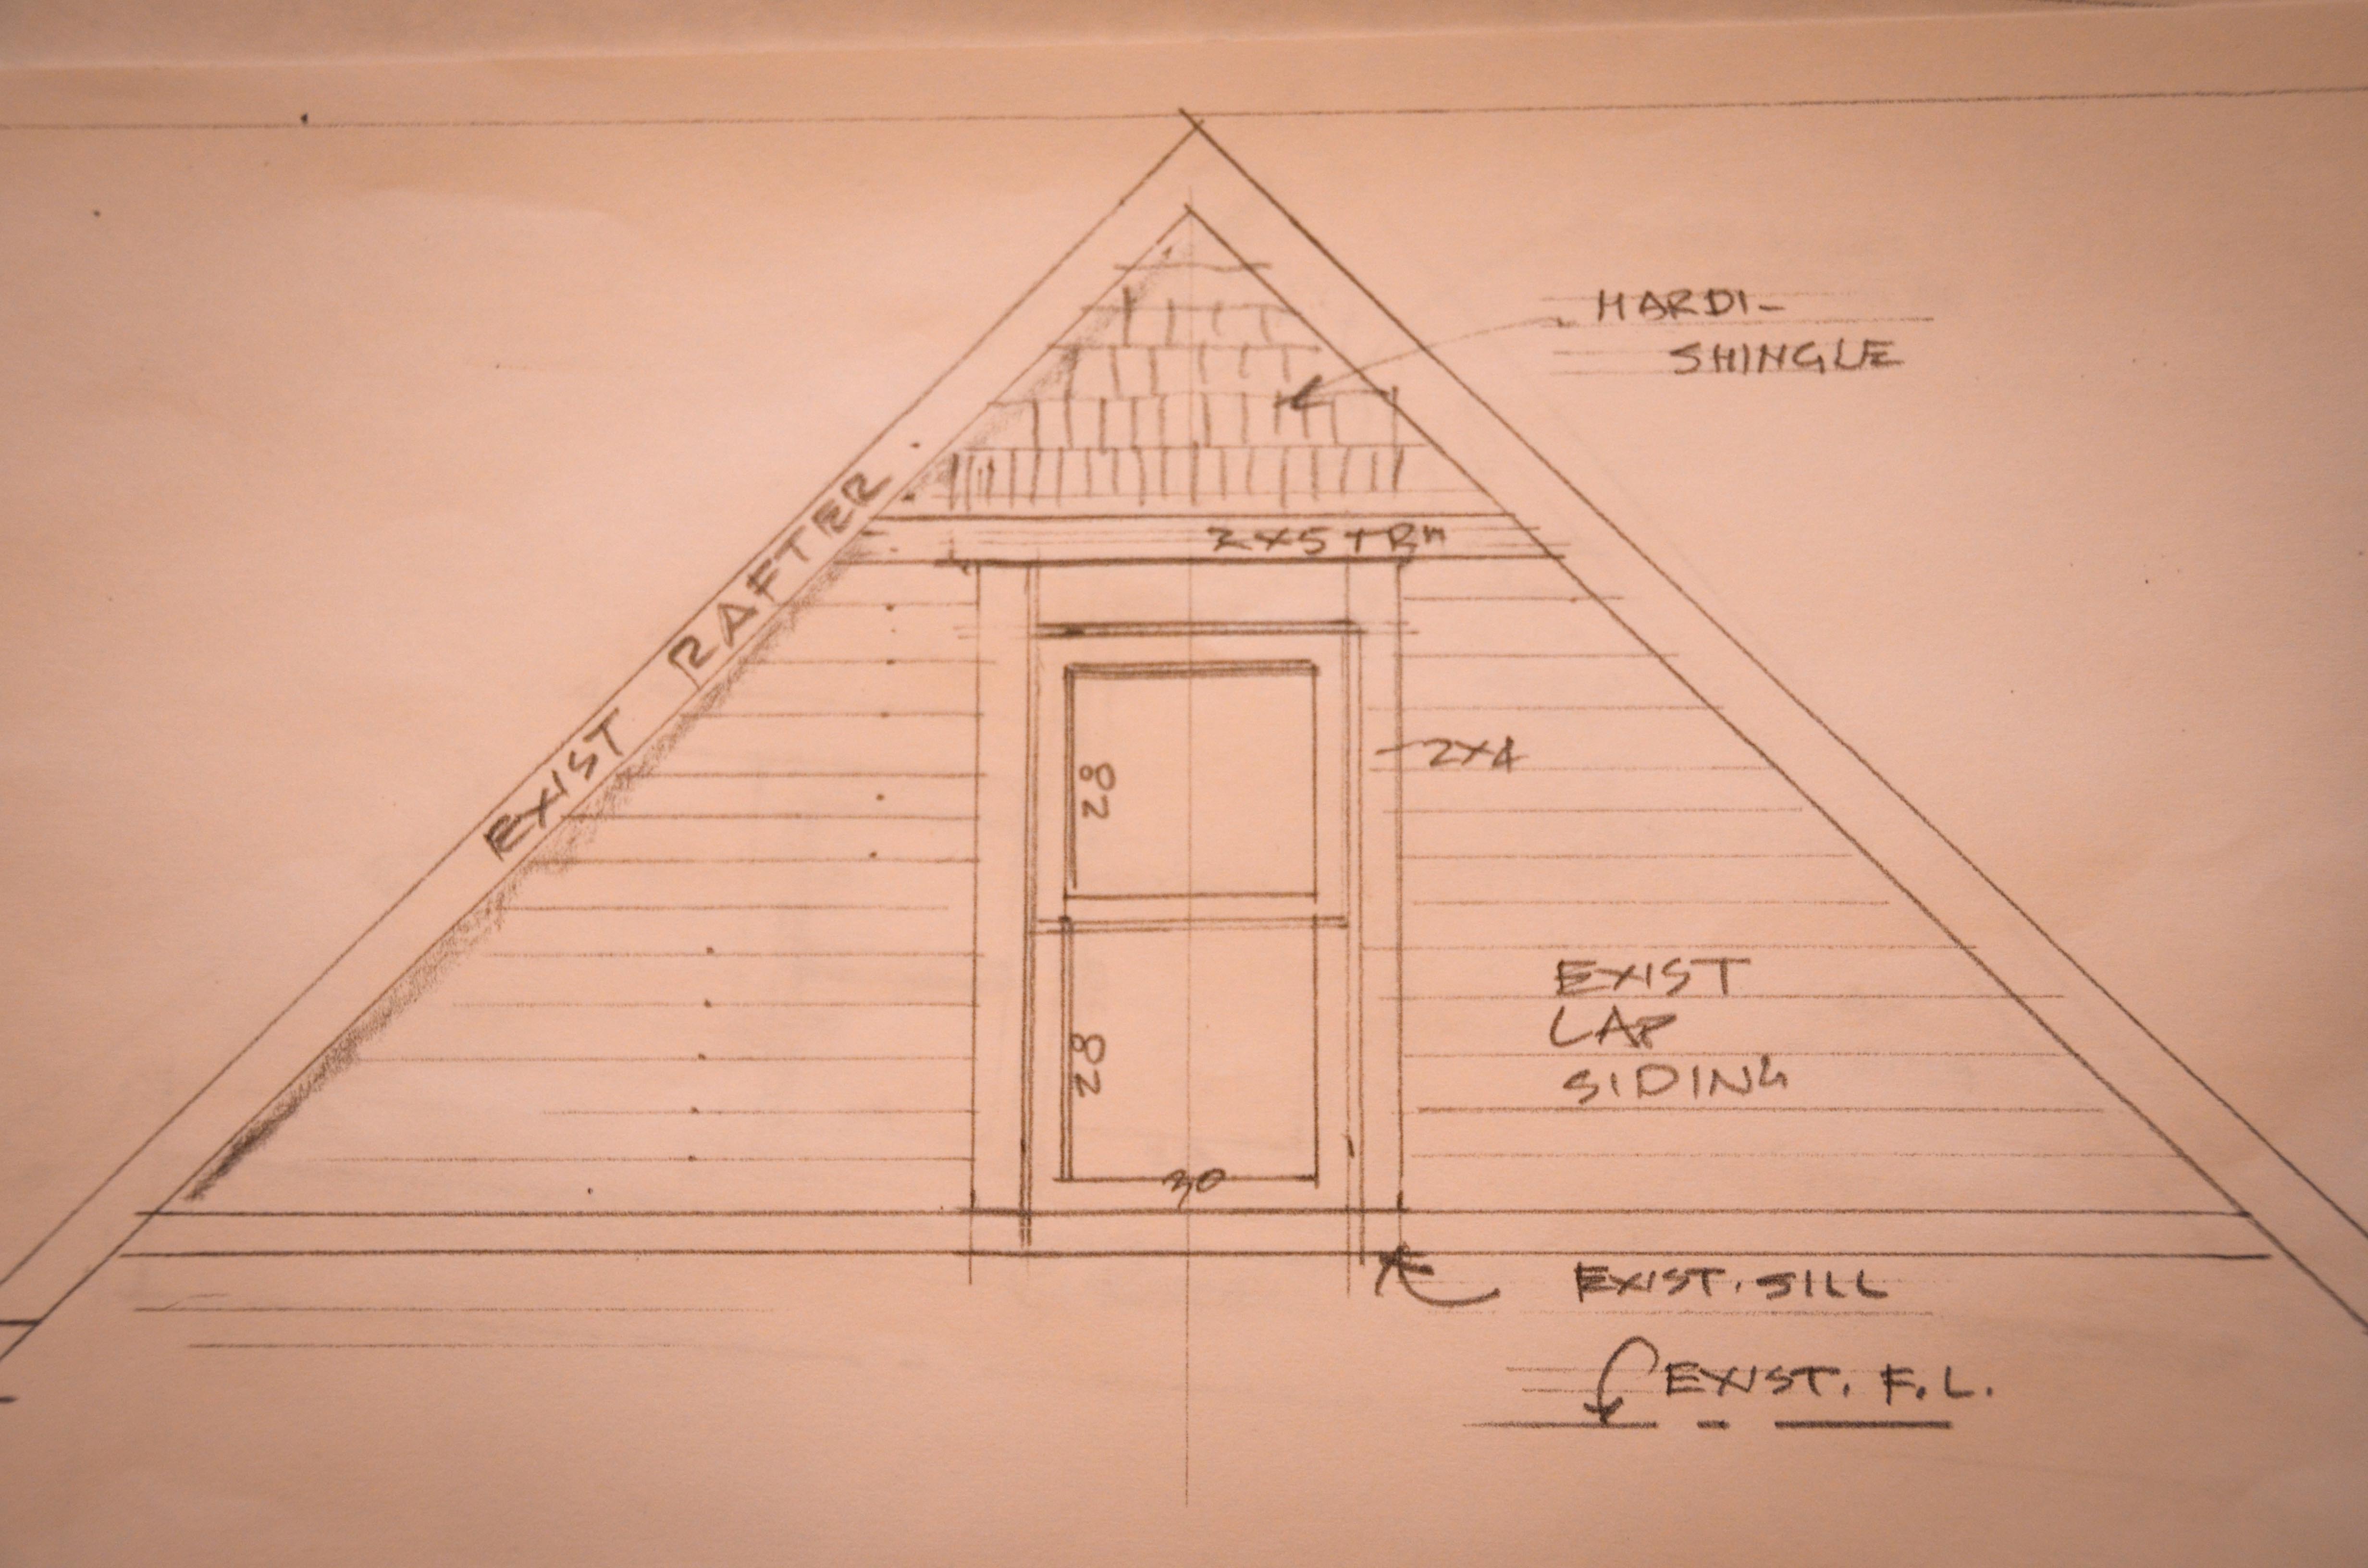 HARDI-
SHINGLE
EXIST RAFTER
2X5 TRM
28
2X4
EXIST
LAP
SIDING
28
30
EXIST. SILL
EXIST. F.L.